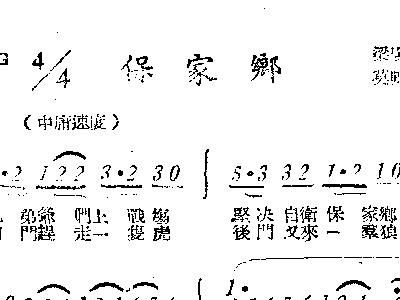 G 4/4 保家鄉
(中庸速度)
•2 1 2 2 3•2 3 0 5•3 3 2 1•2 1 0
弟爺 們上 戰場 堅決 自衛 保 家鄉
門趕 走一 隻虎 後門 又來 一 羣狼